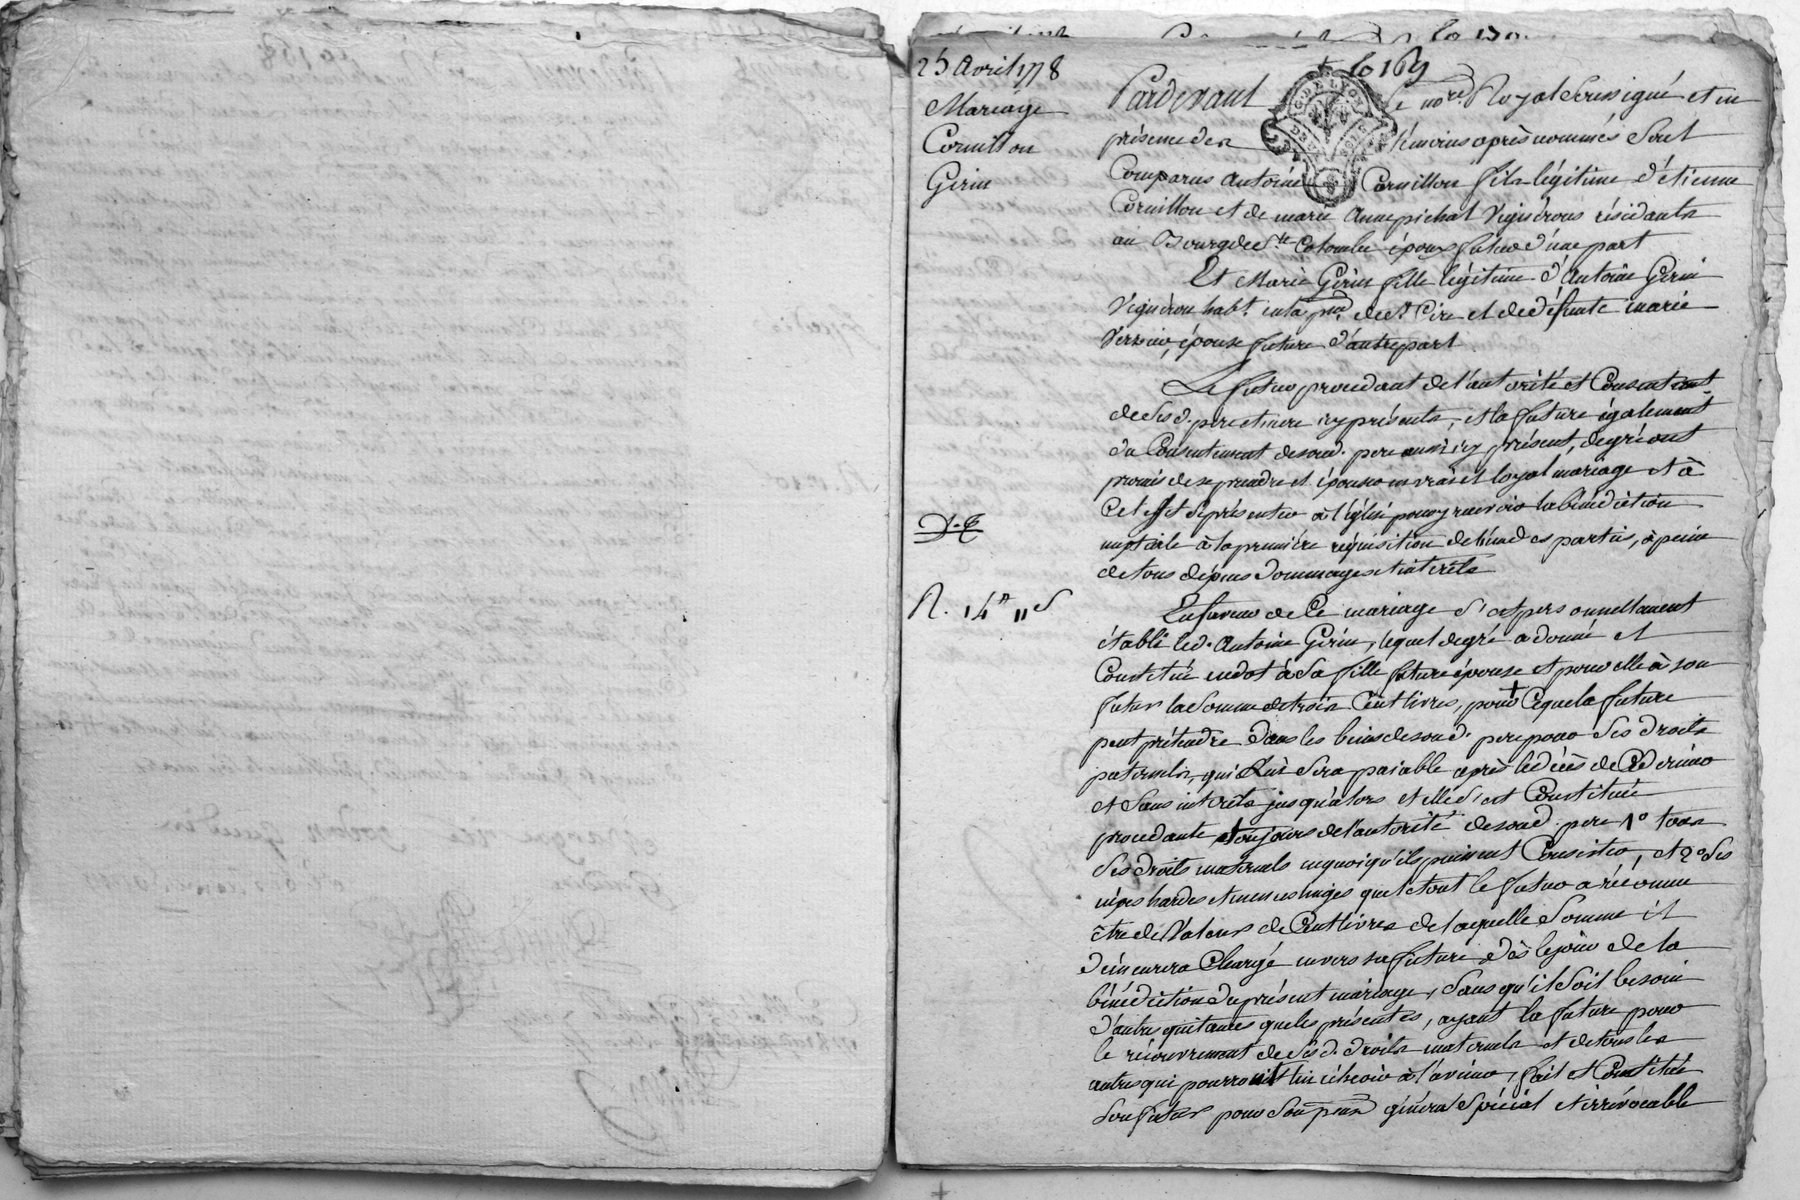 25 Avril 1778
Mariage
Cornillon
Girin
fo 169
Pardevant le nore Royal Soussigné et en
présence des témoins après nommés Sont
Comparus Antoine Cornillon fils légitime d'étienne
Cornillon et de marie Anne pichat Vignérons résidants
au Bourg de Ste Colombe époux futur d'une part
Et Marie Girin fille légitime d'Antoine Girin
Vignéron habt. en la psse de St Cire et de défunte marie
épouse future d'autre part
Le futur procédant de l'autorité et Consentement
de Sesd. pere et mere icy présents, et la future également
du Consentement de sond. pere aussi icy présent, de gré ont
promis de se prendre et épouser en vrai et loyal mariage et à
Cet effet se présenter à l'église pour y recevoir la bénédiction
nuptiale à la première réquisition de l'une des parties, à peine
de tous dépens dommages et intérêts
R. 14 11 s
En faveur de Ce mariage S'est personnellement
établi led. Antoine Girin, lequel de gré a donné et
Constitué en dot à Sa fille future épouse et pour elle à son
futur la Somme de trois Cent livres, pour Ce que la future
peut prétendre dans les biens de sond. pere pour Ses droits
paternels, qui Lui Sera paiable après le décès de Ce dernier
et Sans intérêts jusqu'alors et elle S'est Constituée
procédante toujours de l'autorité de sond. pere 1° tous
Ses droits maternels en quoi qu'ils puissent Consister, et 2° Ses
nipes hardes et menus linges que le tout le futur a réconnu
être de Valeur de Cent livres de laquelle Somme il
demeurera Chargé envers sa future dès le jour de la
bénédiction du présent mariage, Sans qu'il Soit besoin
d'autres quitances que les présentes, ayant la future pour
le récouvrement de Sesd. droits maternels et de tous les
autres qui pourroient lui échoir à l'avenir, fait et Constitué
Son futur pour Son pror général Spécial et irrévocable